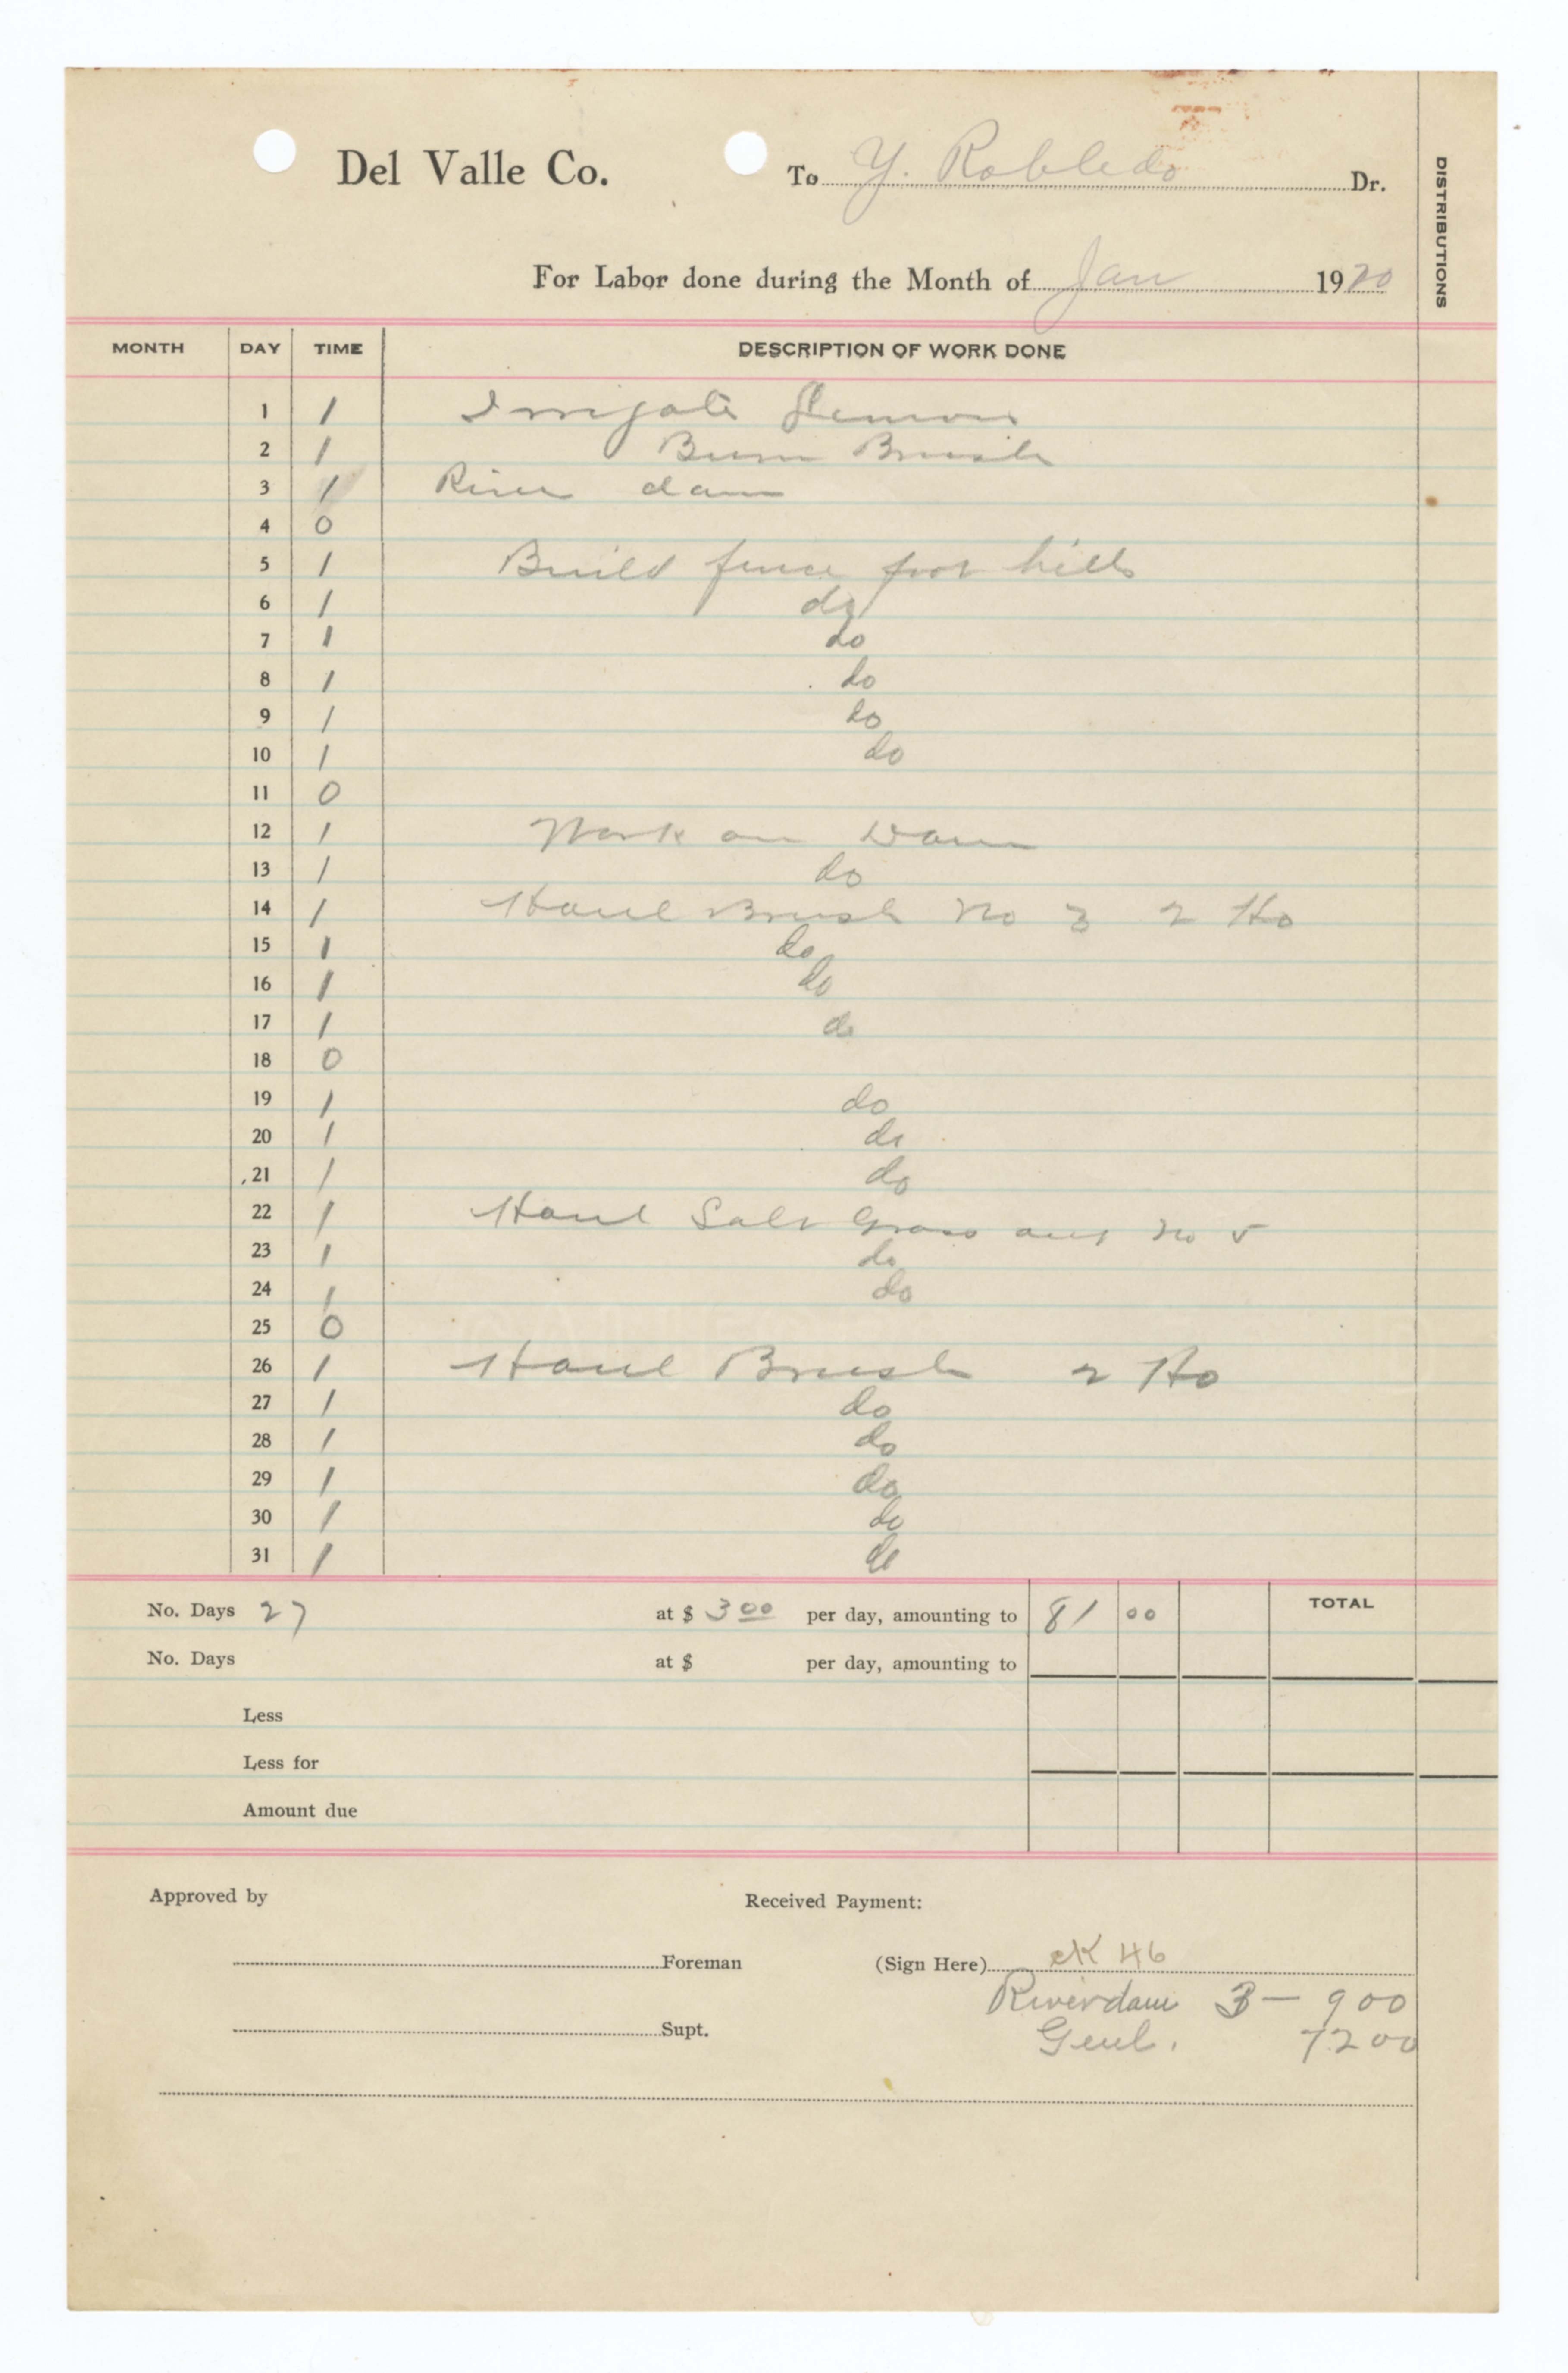 Del Valle Co. To Y. Robledo Dr.
DISTRIBUTIONS
For Labor done during the Month of Jan 1920
MONTH DAY TIME DESCRIPTION OF WORK DONE
1 1 Irrigate Lemons
2 1 Burn Brush
3 1 River dam
4 0
5 1 Build fence foot hills
6 1 do
7 1 do
8 1 do
9 1 do
10 1 do
11 0
12 1 Work on Dam
13 1 do
14 1 Haul Brush No 3 2 Ho
15 1 do
16 1 do
17 1 do
18 0
19 1 do
20 1 do
21 1 do
22 1 Haul Salt Grass No 5
23 1 do
24 1 do
25 0
26 1 Haul Brush 2 Ho
27 1 do
28 1 do
29 1 do
30 1 do
31 1 do
No. Days 27 at $ 3 00 per day, amounting to 81 00 TOTAL
No. Days at $ per day, amounting to
Less
Less for
Amount due
Approved by Received Payment:
Foreman (Sign Here) cK 46
Riverdam 3 — 9 00
Supt.
Genl. 72 00